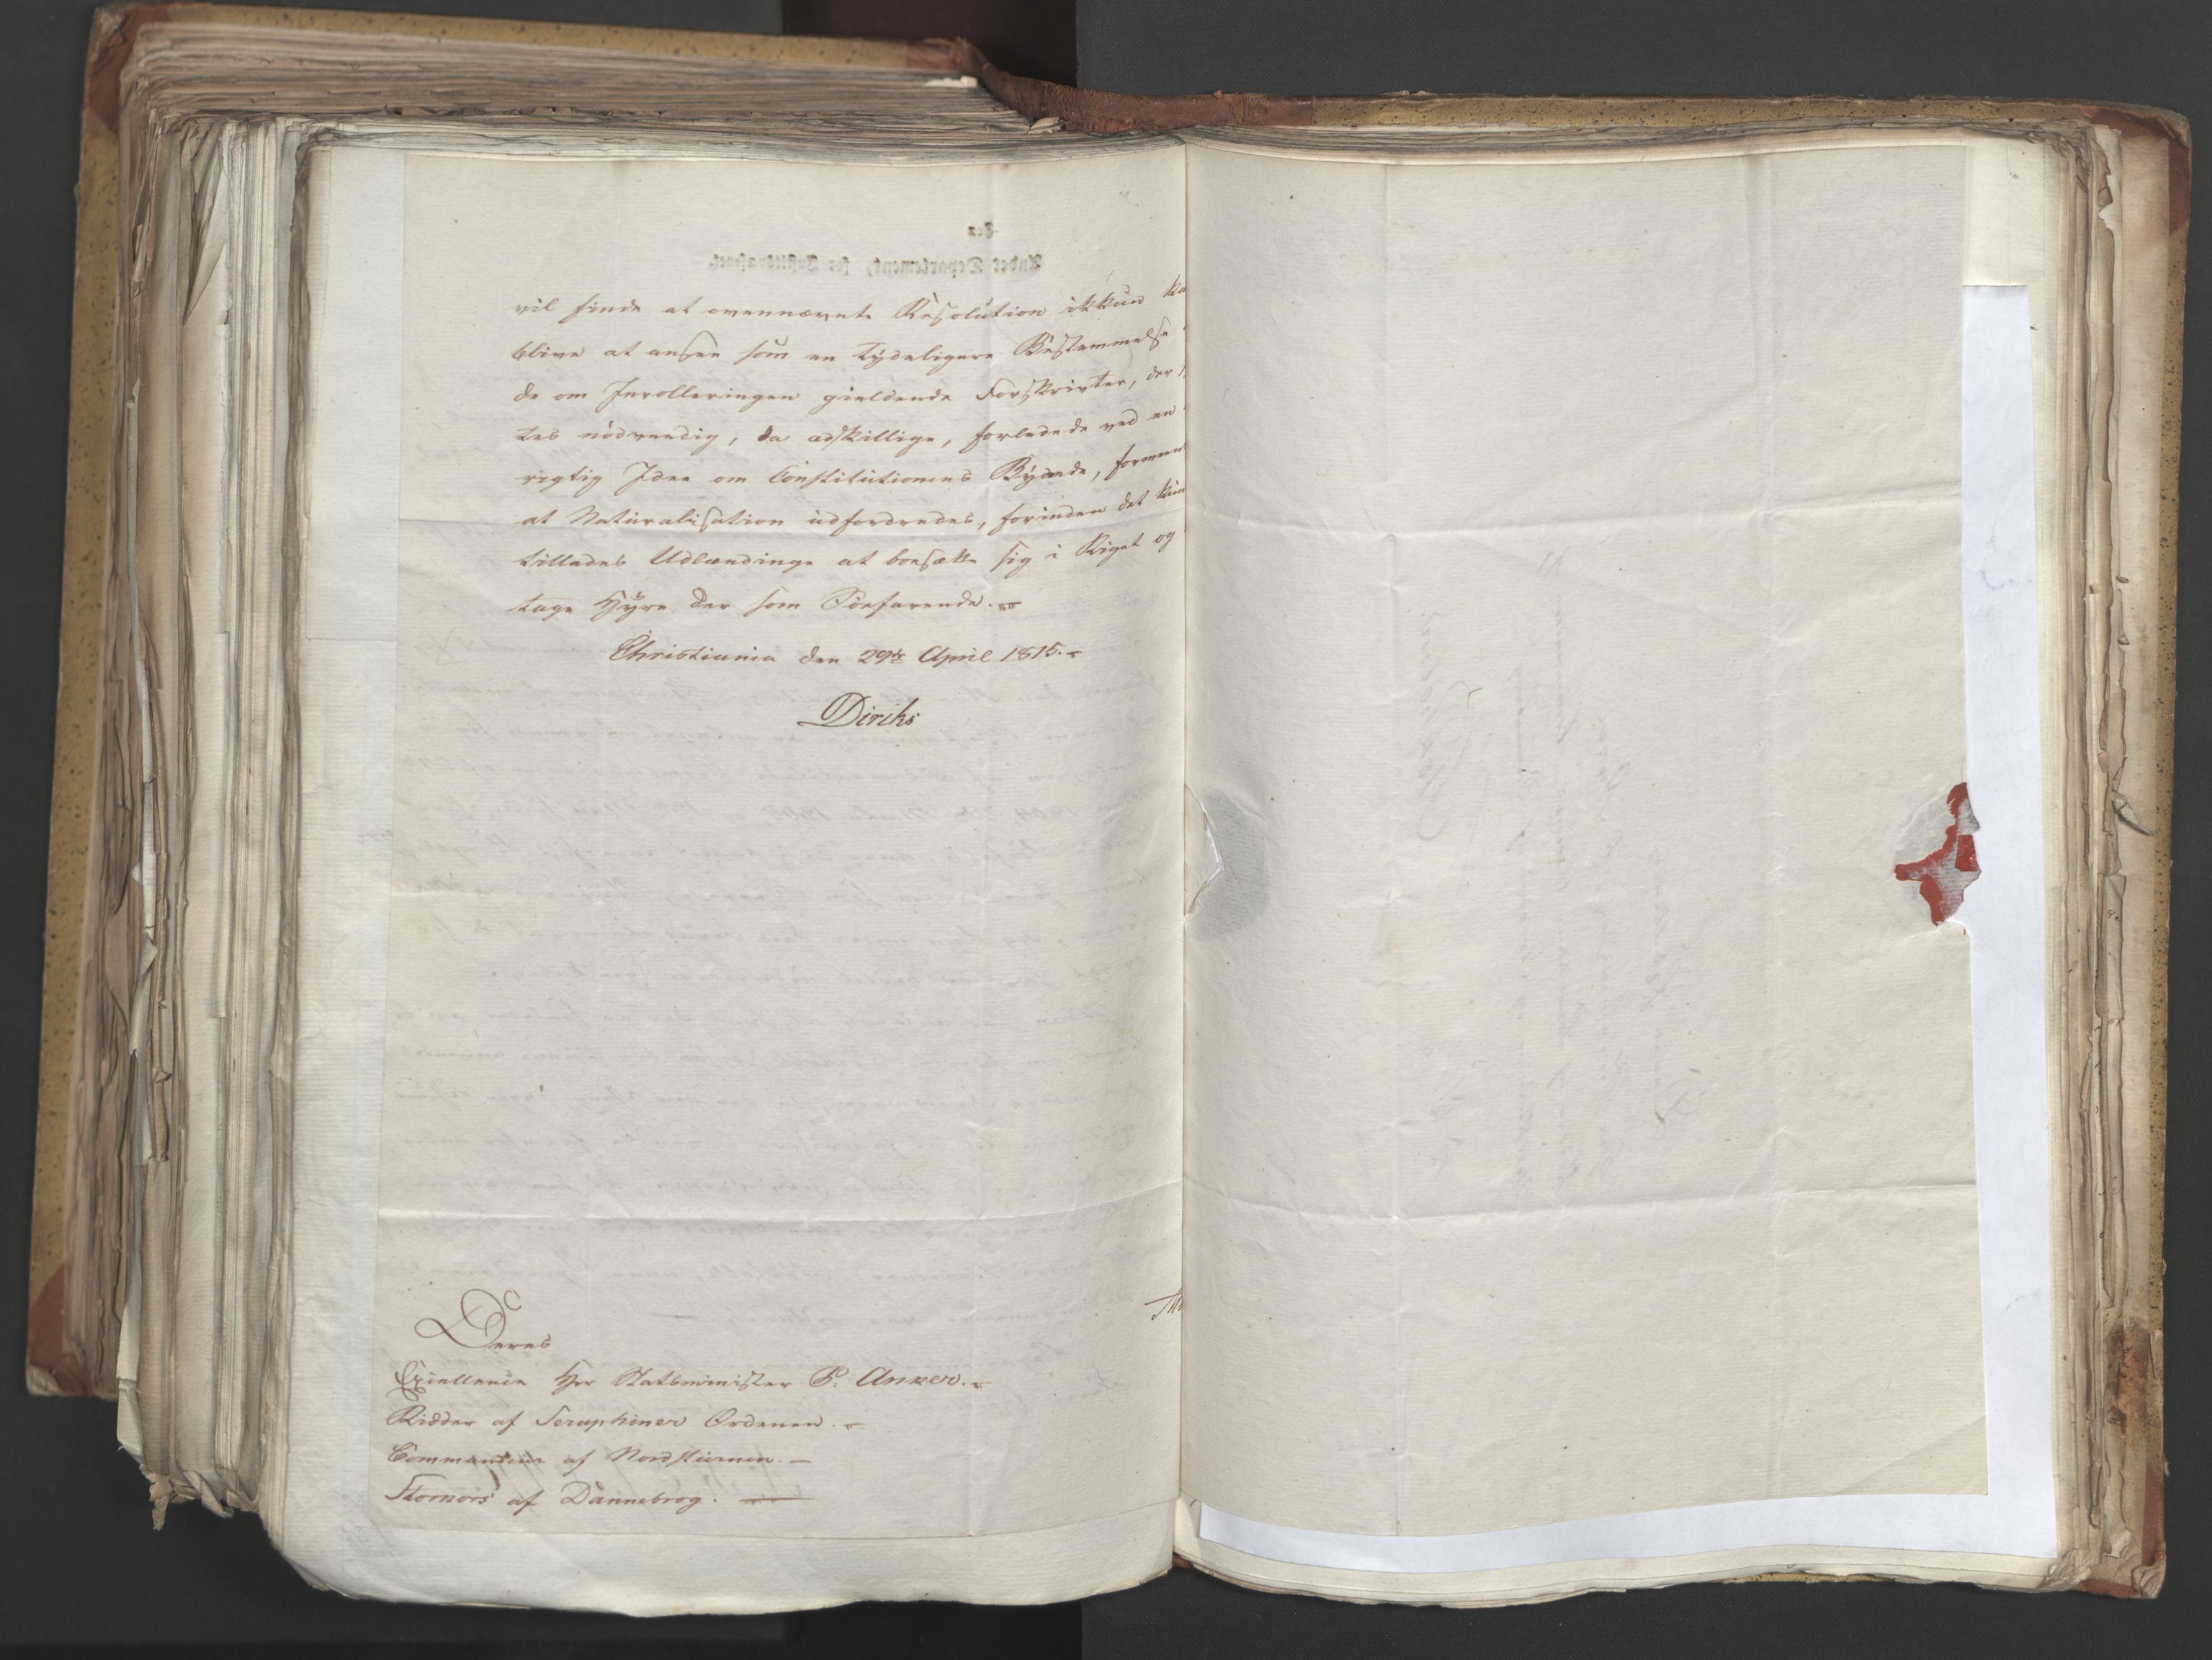 vil finde at ovennævnte Resolution ikkun ka
blive at ansee som en tydeligere Bestemmelse
de om Inrolleringen gieldende Forskrivter, der
tes nödvendig, da adskillige, forledede ved en
rigtig Idee om Constitutionens Bydende, formeen
at Naturalisation udfordredes, forinden det kun
tillades Udlændinge at boesætte sig i Riget og
tage Hyre der som Söefarende.
Christiania den 29de April 1815.
Diriks
Deres
Excellence Herr Statsminister P. Anker.
Ridder af Seraphiner Ordenen.
Commandeur af Nordstiernen.
Storkors af Dannebrog.